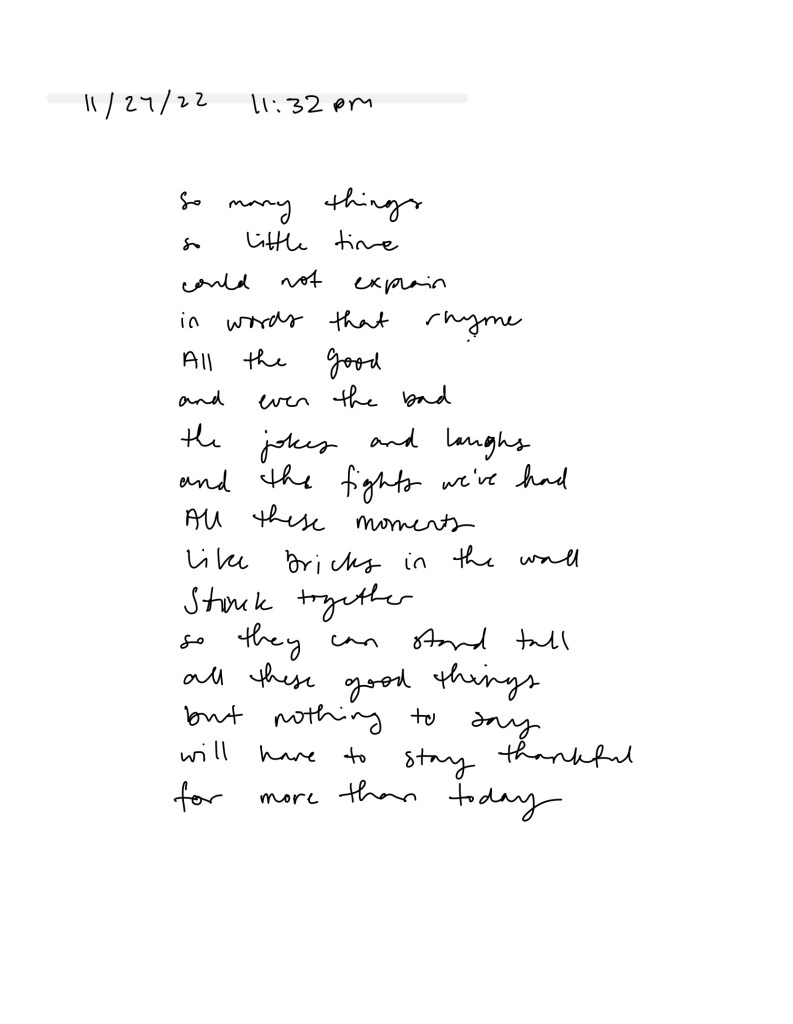 11/27/22 11:32 pm
so many things
so little time
could not explain
in words that rhyme
All the good
and even the bad
the jokes and laughs
and the fights we've had
All these moments
Like bricks in the wall
Stuck together
so they can stand tall
all these good things
but nothing to say
will have to stay thankful
for more than today